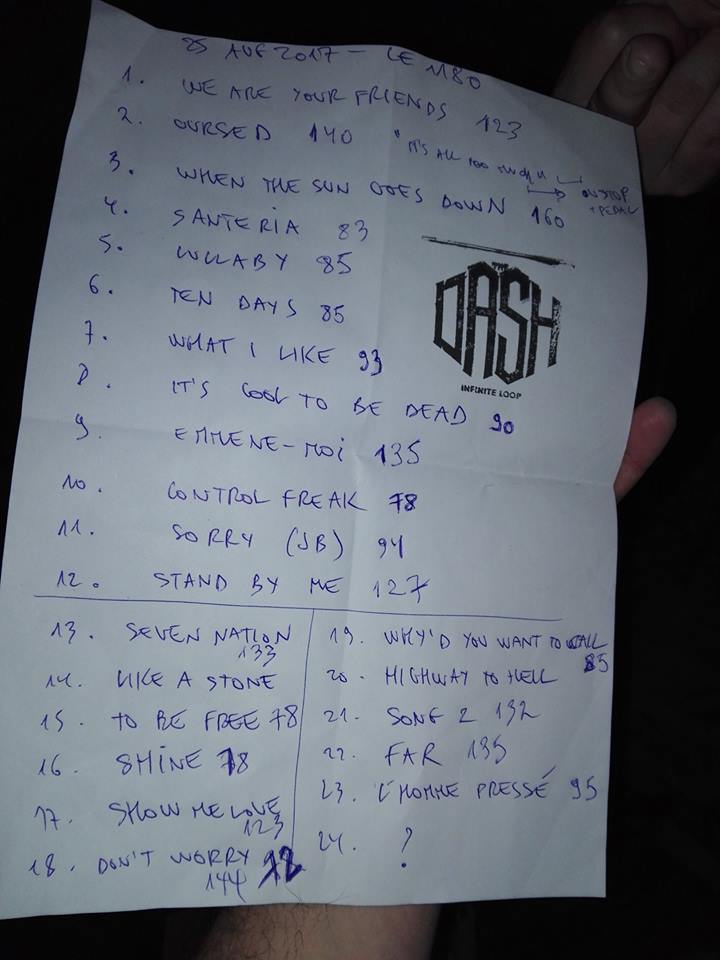 25 AUG 2017 - LE 1180
1. WE ARE YOUR FRIENDS 123
2. OURSED 140 "IT'S ALL TOO MUCH"
ON STOP
+ PEDAL
3. WHEN THE SUN GOES DOWN 160
4. SANTERIA 83
5. LULLABY 85
6. TEN DAYS 85
7. WHAT I LIKE 93
8. IT'S COOL TO BE DEAD 90
9. EMMENE-MOI 135
10. CONTROL FREAK 78
11. SORRY (JB) 94
12. STAND BY ME 127
THE
DASH
INFINITE LOOP
13. SEVEN NATION
133
14. LIKE A STONE
15. TO BE FREE 78
16. SHINE 78
17. SHOW ME LOVE
123
18. DON'T WORRY
144
19. WHY'D YOU WANT TO CALL
85
20. HIGHWAY TO HELL
21. SONG 2 132
22. FAR 135
23. L'HOMME PRESSÉ 95
24. ?